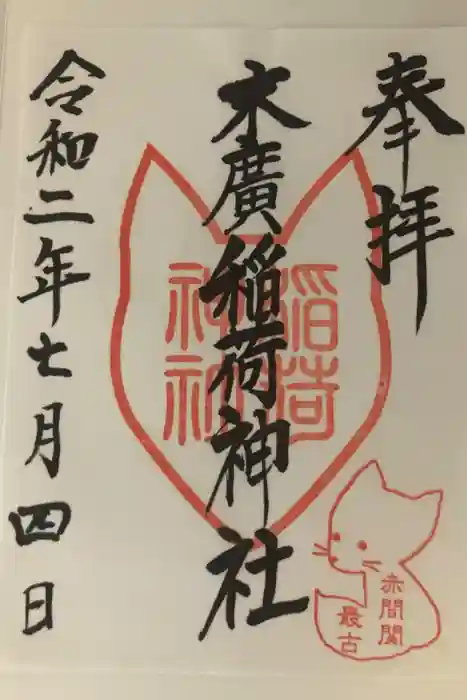 奉拝
末廣稲荷神社
稲荷
神社
赤間関
最古
令和二年七月四日